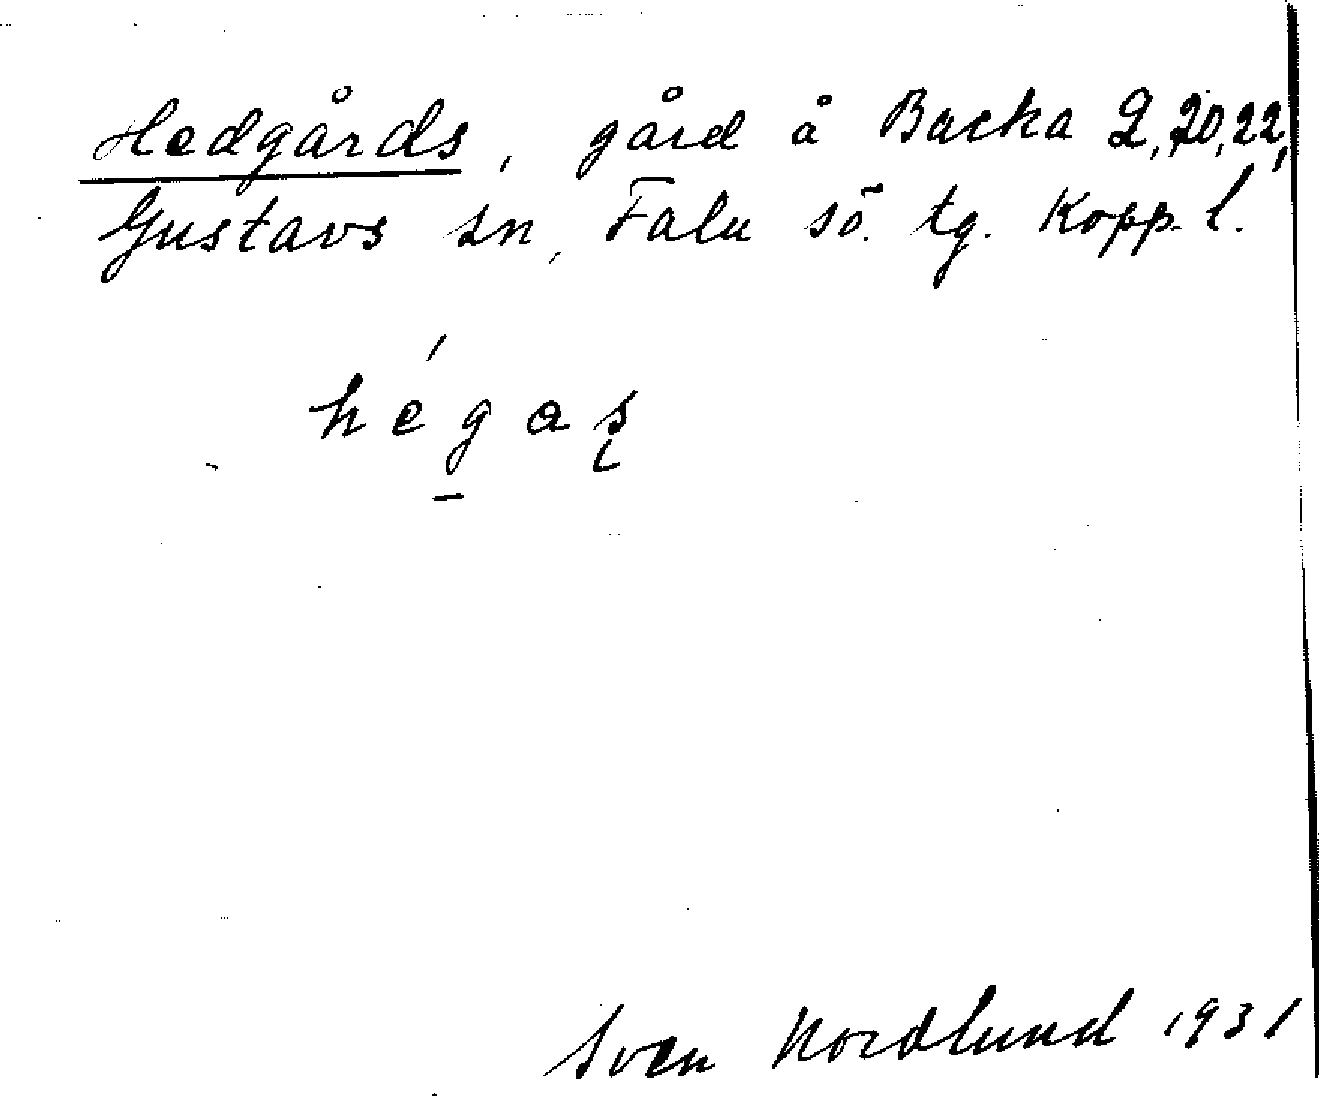 Hedgårds, gård å Backa 2, 20, 22,
Gustavs sn, Falu sö. tg. Kopp. l.
hégaʂ
Sven Nordlund 1931